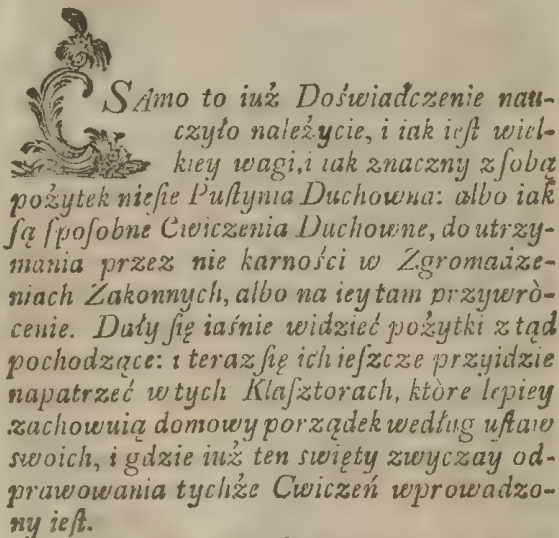 SAmo to iuż Doświadczenie nau-
czyło należycie, i iak ieſt wiel-
kiey wagi, i iak znaczny z ſobą
pożytek nieſie Puſtynia Duchowna: albo iak
ſą ſpoſobne Cwiczenia Duchowne, do utrzy-
mania przez nie karności w Zgromadze-
niach Zakonnych, albo na iey tam przywrò-
cenie. Dały ſię iaśnie widzieć pożytki z tąd
pochodzące: i teraz ſię ich ieſzcze przyidzie
napatrzeć w tych Klaſztorach, ktòre lepiey
zachowuią domowy porządek według uſtaw
swoich, i gdzie iuż ten swięty zwyczay od-
prawowania tychże Cwiczeń wprowadzo-
ny ieſt.